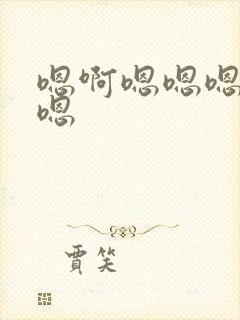 嗯啊嗯嗯嗯
嗯
贾笑